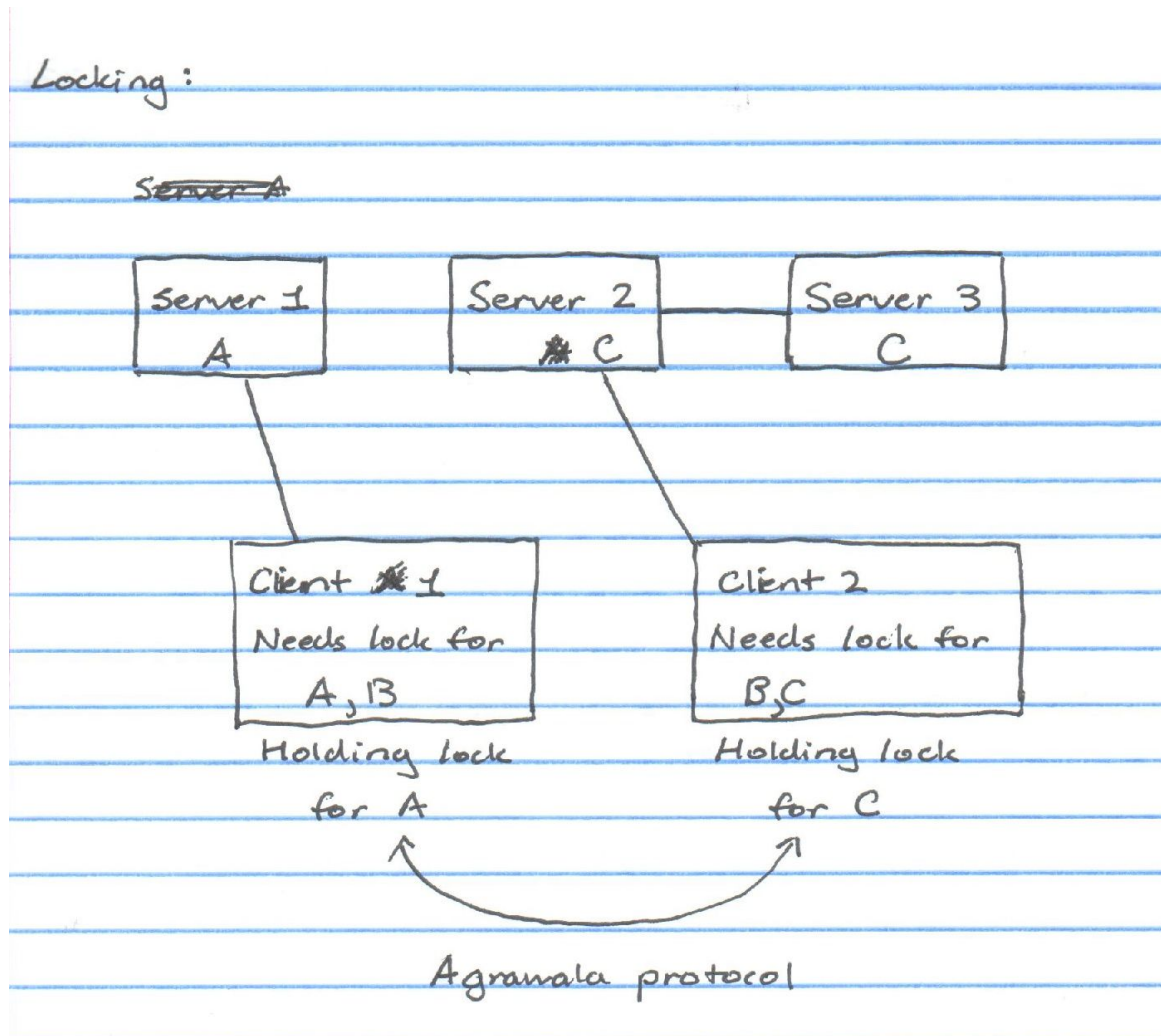 Locking:
Server A
Server 1
A
Server 2
C
Server 3
C
Client 1
Needs lock for
A, B
Client 2
Needs lock for
B,C
Holding lock
for A
Holding lock
for C
Agrawala protocol